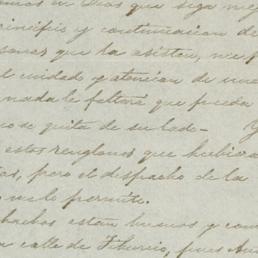 en Dios que siga mej
rincipio y continuacion de
sonas que la asisten, me p
el cuidado y atencion de nues
nada le faltará que pueda
no se quita de su lado— Y
estos renglones que hubiera
tos, pero el despacho de la
me lo permite.
chachos estan buenos y con
calle de Therrio, pues Au